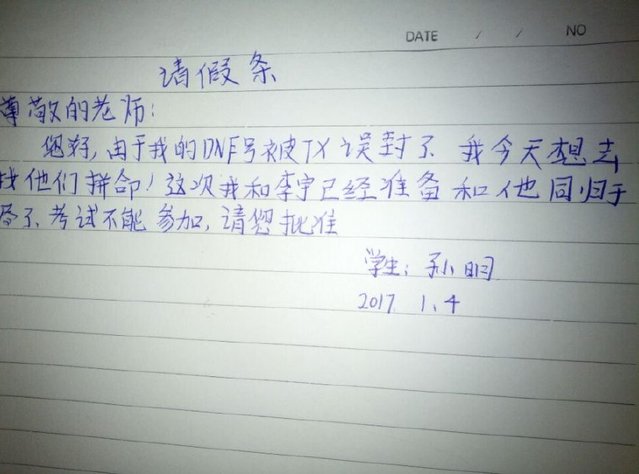 DATE / / NO
请假条
尊敬的老师:
您好,由于我的DNF号被TX误封了 我今天想去
找他们拼命!这次我和李宇已经准备和他同归于
尽了.考试不能参加,请您批准
学生:孙明
2017. 1. 4